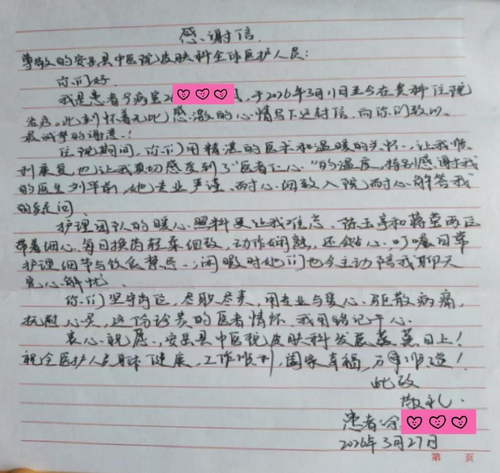 感谢信
尊敬的安岳县中医院皮肤科全体医护人员:
你们好
我是患者 病室2 ,于2026年3月1日至今在贵科住院
治疗,此刻怀着无比感激的心情写下这封信,向你们致以
最诚挚的谢意!
住院期间,你们用精湛的医术和温暖的关怀,让我顺
利康复,也让我真切感受到了"医者仁心"的温度,特别感谢我
的医生刘平 ,他专业严谨,耐心细致入院耐心解答我
的疑问
护理团队的暖心照料更让我难忘,陈玉 和蒋 两位
带着细心,每日换药轻柔细致,动作娴熟,还贴心叮嘱日常
护理细节与饮食禁忌,闲暇时他们也会主动陪我聊天
宽心解忧
你们坚守岗位,尽职尽责,用专业与爱心驱散病痛,
抚慰人心,这份珍贵的医者情怀,我用铭记于心
衷心祝愿,安岳县中医院皮肤科发展蒸蒸日上!
祝全医护人员身体健康,工作顺利,阖家幸福,万事顺遂!
此致
敬礼
患者:
2026年3月27日
第 页